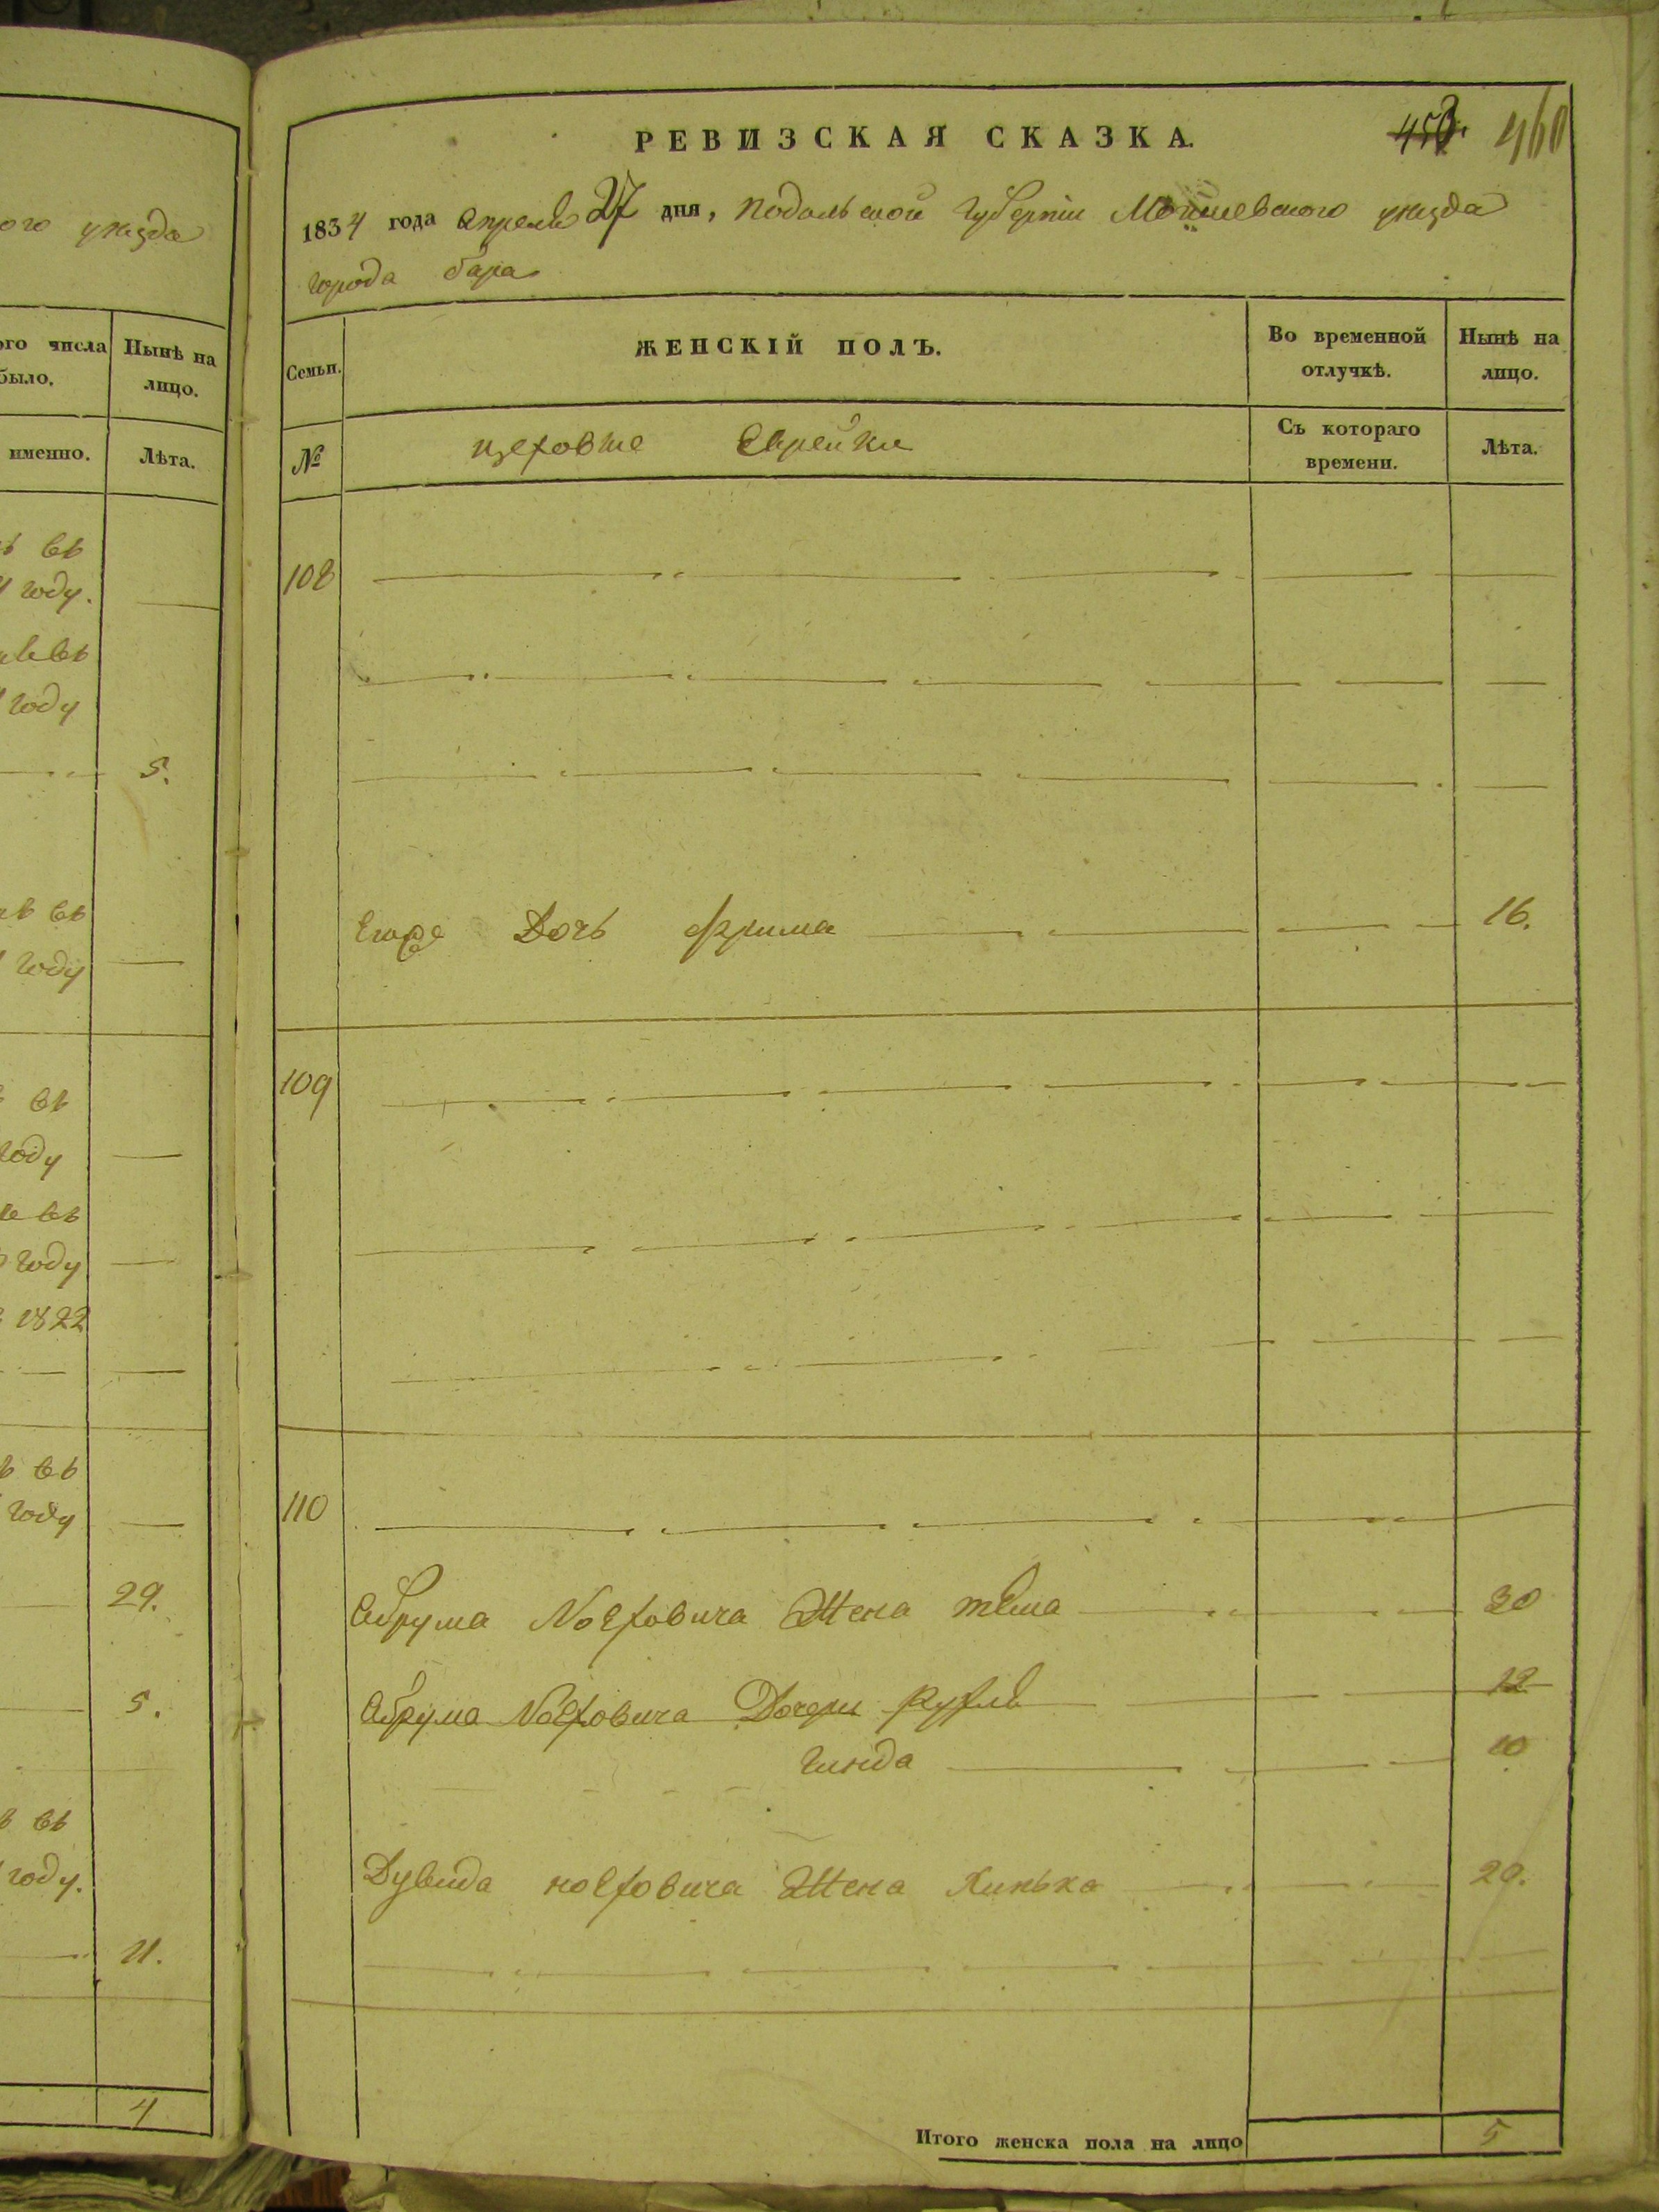 ого уезда
ого числа
было.
Нынѣ на
лицо.
именно.
Лѣта.
въ
году.
въ
году
5.
въ
году
въ
году
въ
году
1822
въ
году
29.
5.
въ
году.
11.
4
РЕВИЗСКАЯ СКАЗКА.
460
1834 года апреля 27 дня, подольской губернiи Могилевского уезда
города бара
Семьи.
ЖЕНСКІЙ ПОЛЪ.
Во временной
отлучкѣ.
Нынѣ на
лицо.
№
цеховые Еврейки
Съ котораго
времени.
Лѣта.
108
Его Дочь фрима 16.
109
110
Абрума Nоеховича Жена 30
Абрума Nоеховича Дочери Рухля 12
гинда 10
Дувида ноеховича Жена Хинька 20.
Итого женска пола на лицо 5